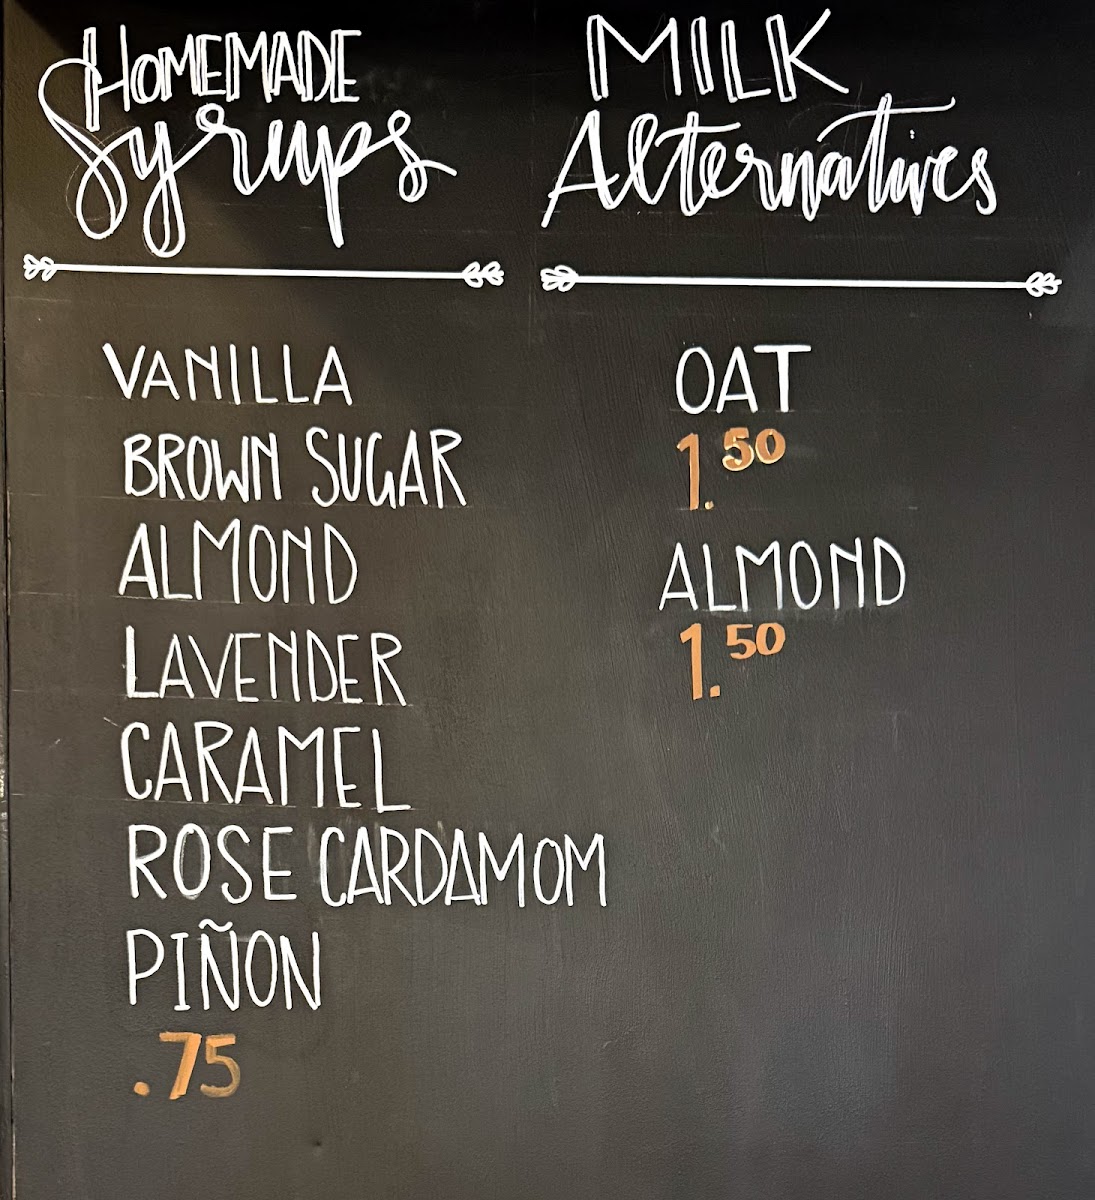 HOMEMADE
Syrups
VANILLA
BROWN SUGAR
ALMOND
LAVENDER
CARAMEL
ROSE CARDAMOM
PIÑON
.75
MILK
Alternatives
OAT
1.50
ALMOND
1.50